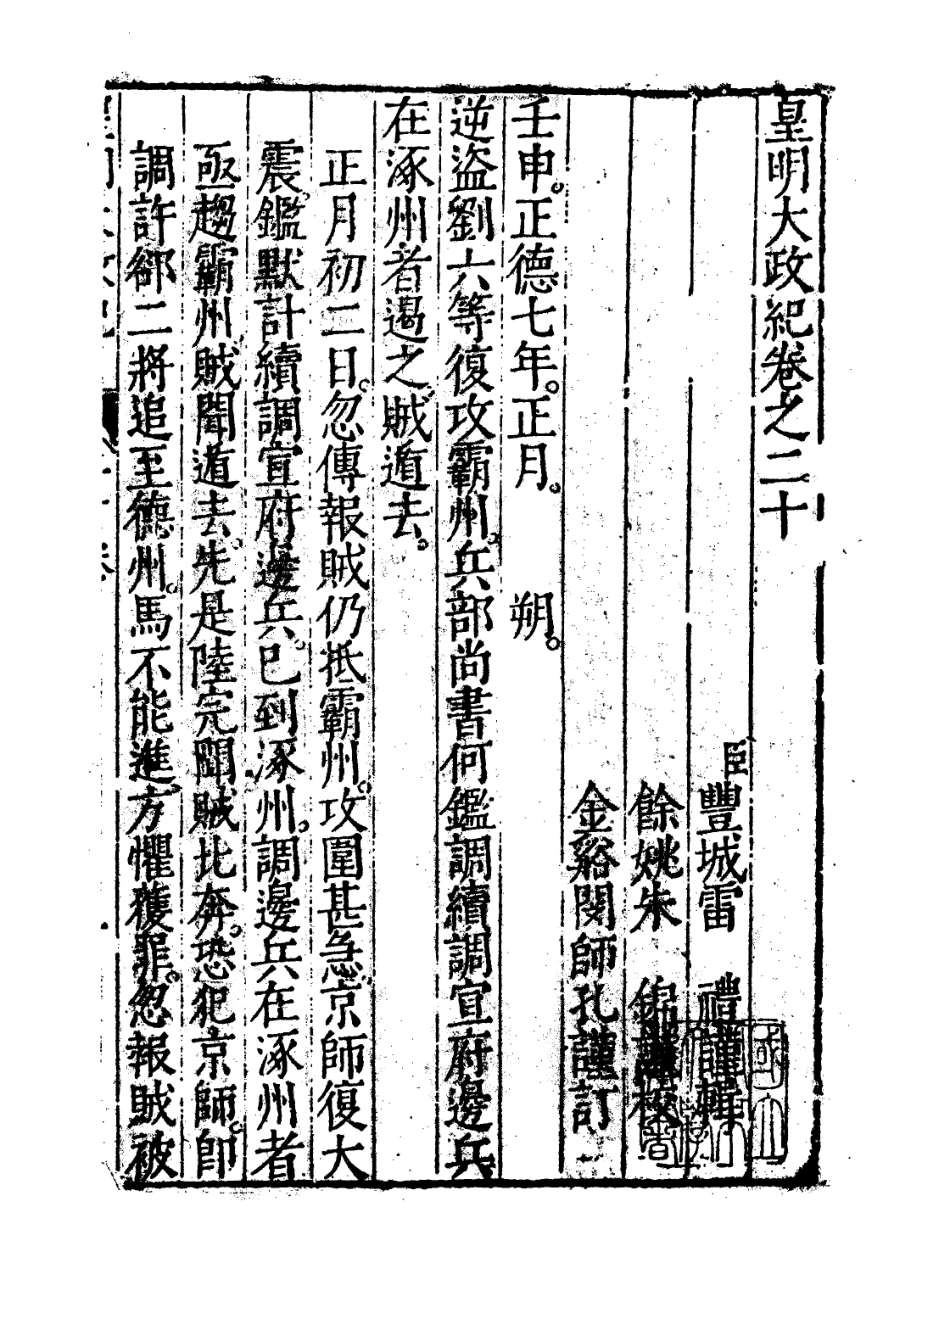 皇明大政紀卷之二十
臣豐城雷　禮謹輯
餘姚朱　錦謹校
金谿閔師孔謹訂
壬申。正德七年。正月。　朔。
逆盜劉六等復攻霸州。兵部尚書何鑑調續調宣府邊兵
在涿州者遏之。賊遁去。
正月初二日。忽傳報賊仍抵霸州。攻圍甚急。京師復大
震。鑑默計續調宣府邊兵。已到涿州。調邊兵在涿州者
亟趨霸州。賊聞遁去。先是陸完聞賊北奔。恐犯京師。即
調許郤二將追至德州。馬不能進。方懼獲罪。忽報賊被